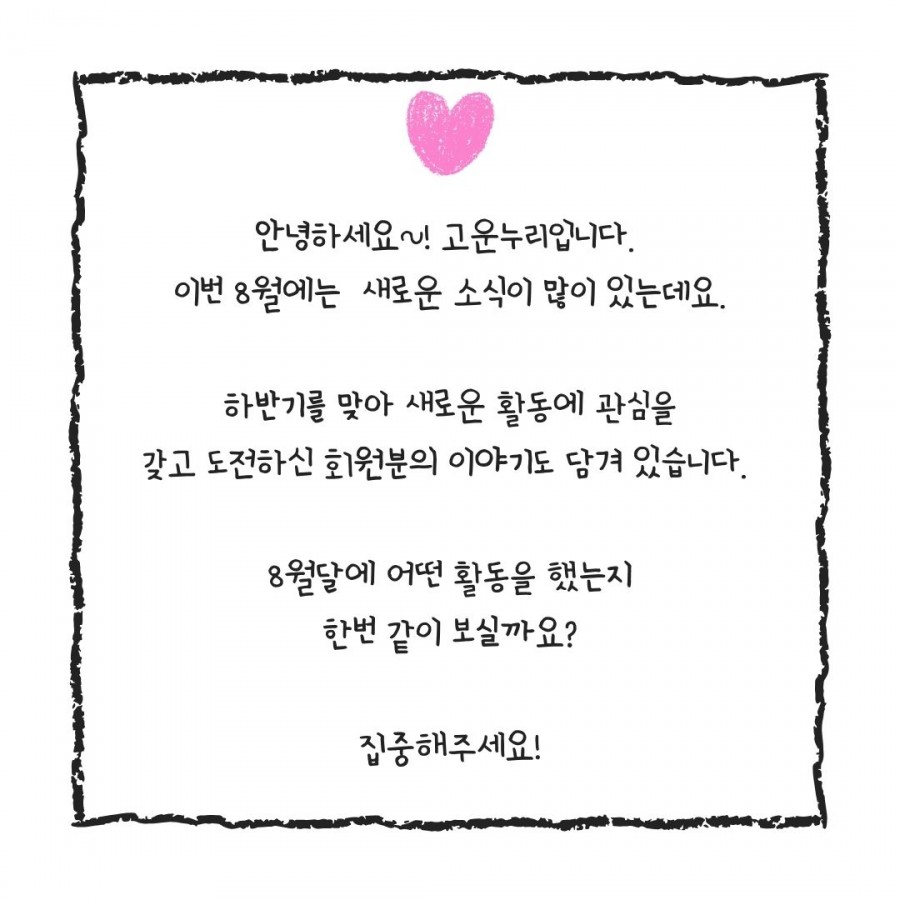 안녕하세요~! 고운누리입니다.
이번 8월에는 새로운 소식이 많이 있는데요.
하반기를 맞아 새로운 활동에 관심을
갖고 도전하신 회원분의 이야기도 담겨 있습니다.
8월달에 어떤 활동을 했는지
한번 같이 보실까요?
집중해주세요!